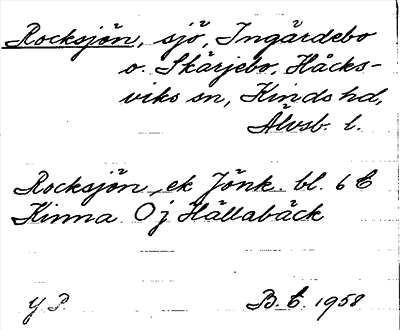 Rocksjön, sjö, Ingärdebo
o. Skärjebo, Håcks-
viks sn, Kinds hd,
Älvsb. l.
Rocksjön, ek Jönk. bl. 6 C
Kinna Öj Hällabäck
Y P. B. C. 1958